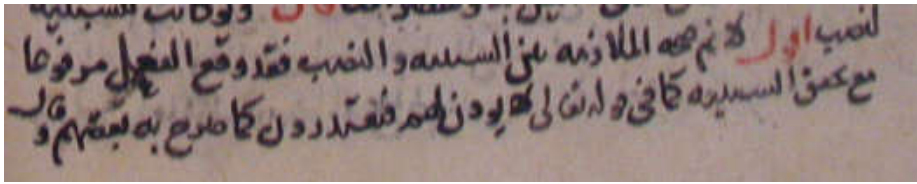 قال ولو كانت للسببية
لنصب اقول لا نم صحه الملازمه بين السببيه و النصب فقد وقع الفعل مرفوعا
مع تحقق السببيه كما فى قوله تعالى لا يوذن لهم فيعتذرون كما صرح به بعضهم